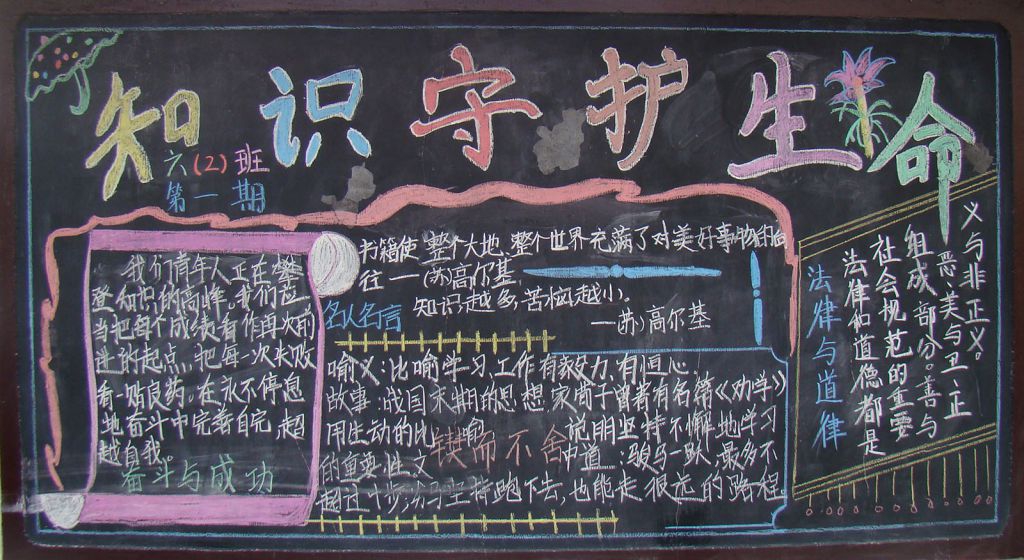 知识守护生命
六(2)班
第一期
我们青年人正在攀
登知识的高峰。我们应
当把每个成绩看作再次前
进的起点，把每一次失败
看一贴良药。在永不停息
地奋斗中完善自完 超
越自我。
奋斗与成功
书籍使 整个大地,整个世界充满了对美好事物的向
往——(苏)高尔基
名人名言
知识越多,苦恼越小。
——(苏)高尔基
喻义:比喻学习、工作有毅力,有恒心
故事:战国末期的思想家荀子曾著有名篇《劝学》
用生动的比喻 说明坚持不懈地学习
的重要性文 中道:骏马一跃,最多不
锲而不舍
超过十步;坚持跑下去,也能走很远的路程
法律与道律
法律和道德都是
社会规范的重要
组成部分。善与
恶、美与卫、正
义与非正义。